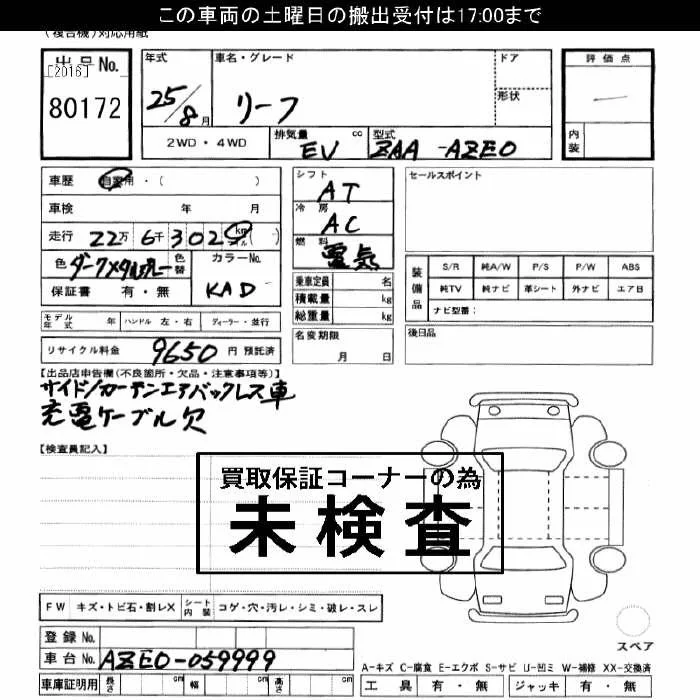 この車両の土曜日の搬出受付は17:00まで
(複合機)対応用紙
出品No.
[2016]
80172
年式
25/8月
車名・グレード
リーフ
ドア
形状
評価点
内装
2WD・4WD
排気量 cc
EV
型式
ZAA-AZE0
車歴 自家用・( )
車検 年 月
走行 22万 6千 302 km マイル ( )
色 ダークメタルグレー 色替
カラーNo.
KAD
保証書 有・無
シフト
AT
冷房
AC
燃料
電気
乗車定員 名
積載量 kg
総重量 kg
セールスポイント
装備品
S/R 純A/W P/S P/W ABS
純TV 純ナビ 革シート 外ナビ エアB
ナビ型番:
モデル年式 年 ハンドル 左・右 ディーラー・並行
名変期限
月 日
後日品
リサイクル料金 9650 円 預託済
【出品店申告欄(不良箇所・欠品・注意事項等)】
サイド/カーテンエアバックレス車
充電ケーブル欠
【検査員記入】
買取保証コーナーの為
未検査
FW キズ・トビ石・割レX シート内装 コゲ・穴・汚レ・シミ・破レ・スレ
登録No.
車台No. AZE0-059999
車庫証明用 長さ cm 幅 cm 高さ cm
スペア
A-キズ C-腐食 E-エクボ S-サビ U-凹ミ W-補修 XX-交換済
工具 有・無 ジャッキ 有・無